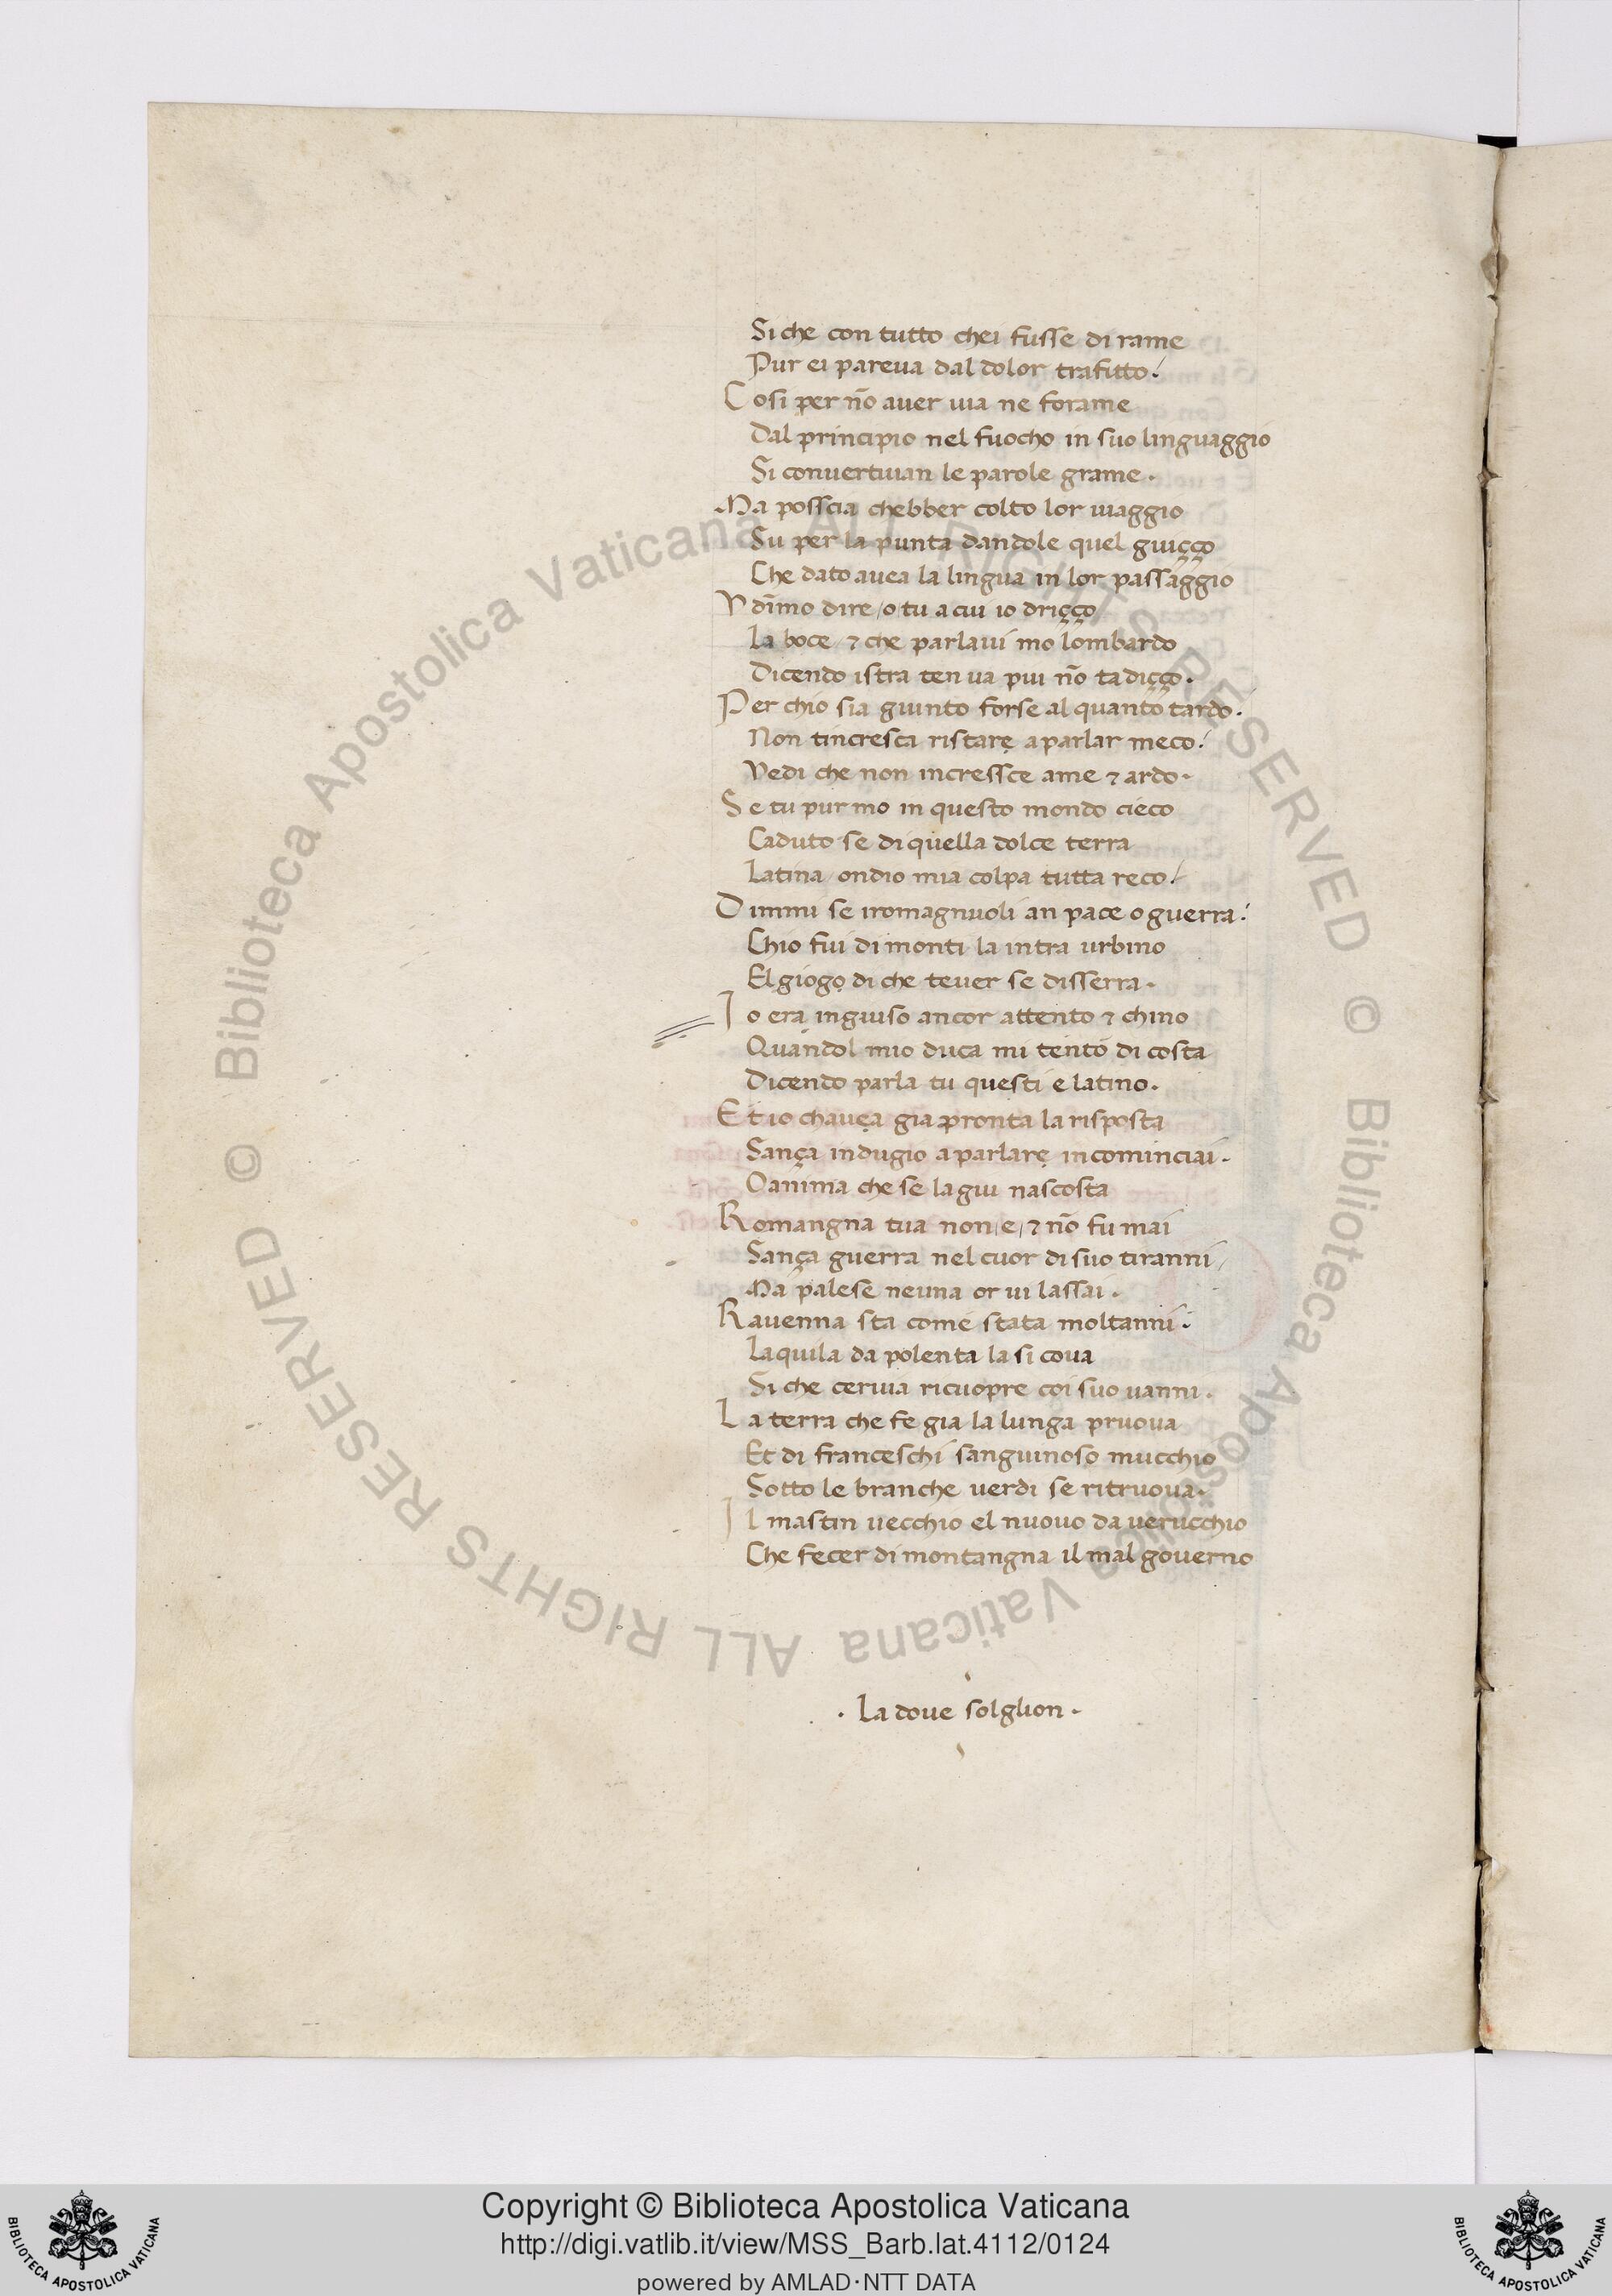 Si che con tutto chei fusse di rame
Pur ei pareua dal dolor trafitto.
Cosi per nõ auer uia ne forame
Dal principio nel fuocho in suo linguaggio
Si conuertiuan le parole grame.
Ma posscia chebber colto lor uiaggio
Su per la punta dandole quel guiçço
Che dato auea la lingua in lor passaggio
Vdĩmo dire / o tu a cui io driçço
La boce / ⁊ che parlaui mo lombardo
Dicendo istra ten ua piu nõ tadiçço.
Per chio sia giunto forse al quanto tardo.
Non tincresca ristarẹ a parlar meco.
Vedi che non incressce ame ⁊ ardo.
Se tu pur mo in questo mondo cieco
Caduto se di quella dolce terra
Latina / ondio mia colpa tutta reco.
Dimmi se iromagnuoli an pace o guerra.
Chio fui di monti la intra urbino
El giogọ di che teuer se disserra.
Io erạ ingiuso ancor attento ⁊ chino
Quandol mio duca mi tento di costa
Dicendo parla tu questi e latino.
Et io chauẹa gia pronta la risposta
Sança indugio a parlarẹ incominciai.
O anima che se la giu nascosta
Romangna tua non / e / ⁊ nõ fu mai
Sança guerra nel cuor di suo tiranni /
Ma palese neuna or ui lassai.
Rauenna sta come stata moltanni.
Laquila da polenta la si coua
Si che ceruia ricuopre coi suo uanni.
La terra che fe gia la lunga pruoua
Et di franceschi sanguinoso mucchio
Sotto le branche uerdi se ritruoua.
Il mastin uecchio el nuouo da uerucchio
Che fecer di montangna il mal gouerno
· La doue solglion ·
© Biblioteca Apostolica Vaticana ALL RIGHTS RESERVED © Biblioteca Apostolica Vaticana ALL RIGHTS RESERVED
Copyright © Biblioteca Apostolica Vaticana
http://digi.vatlib.it/view/MSS_Barb.lat.4112/0124
powered by AMLAD·NTT DATA
BIBLIOTECA APOSTOLICA VATICANA
BIBLIOTECA APOSTOLICA VATICANA